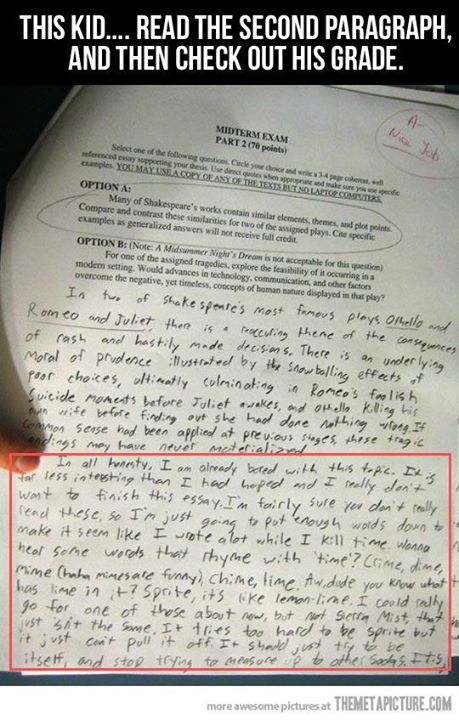 THIS KID.... READ THE SECOND PARAGRAPH,
AND THEN CHECK OUT HIS GRADE.
A-
Nice Job
MIDTERM EXAM
PART 2 (70 points)
Select one of the following questions. Circle your choice and write a 3-4 page coherent, well
referenced essay supporting your thesis. Use direct quotes when appropriate and make sure you use specific
examples. YOU MAY USE A COPY OF ANY OF THE TEXTS BUT NO LAPTOP COMPUTERS.
OPTION A:
Many of Shakespeare's works contain similar elements, themes, and plot points.
Compare and contrast these similarities for two of the assigned plays. Cite specific
examples as generalized answers will not receive full credit.
OPTION B: (Note: A Midsummer Night's Dream is not acceptable for this question)
For one of the assigned tragedies, explore the feasibility of it occurring in a
modern setting. Would advances in technology, communication, and other factors
overcome the negative, yet timeless, concepts of human nature displayed in that play?
In two of Shakespeare's most famous plays Othello and
Romeo and Juliet, there is a reoccuring theme of the consequences
of rash and hastily made decisions. There is an underlying
moral of prudence illustrated by the snowballing effects of
poor choices, ultimatly culminating in Romeo's foolish
suicide moments before Juliet awakes, and Othello killing his
own wife before finding out she had done nothing wrong. If
common sense had been applied at previous stages, these tragic
endings may have never materialized.
In all honesty, I am already bored with this topic. It is
far less intersting than I had hoped and I really don't
want to finish this essay. I'm fairly sure you don't really
read these, so I'm just going to put enough words down to
make it seem like I wrote alot while I kill time. Wanna
hear some words that rhyme with 'time'? Crime, dime,
mime (haha mimes are funny), chime, lime. Aw, dude you know what
has lime in it? Sprite, it's like lemon-lime. I could really
go for one of those about now, but not Sierra Mist, that
just isn't the same. It tries too hard to be sprite but
it just can't pull it off. It should just try to be
itself, and stop trying to measure up to other sodas. It is
more awesome pictures at THEMETAPICTURE.COM